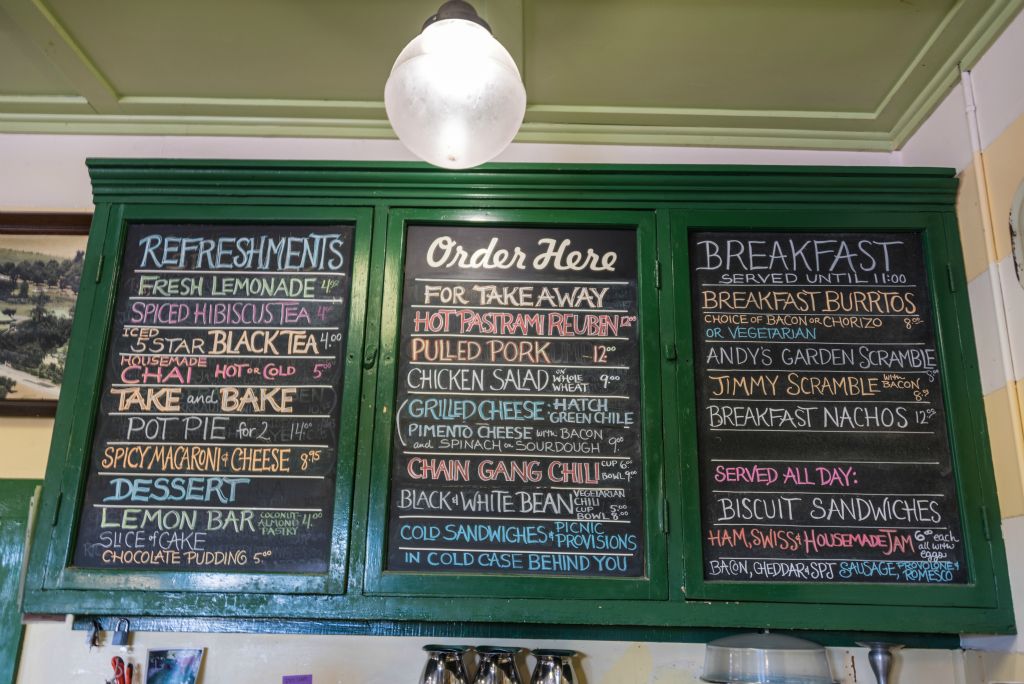 REFRESHMENTS
FRESH LEMONADE 4.00
SPICED HIBISCUS TEA 4
ICED
5 STAR BLACK TEA 4.00
HOUSEMADE
CHAI HOT OR COLD 5.00
TAKE and BAKE
POT PIE for 2 14.00
SPICY MACARONI & CHEESE 8.95
DESSERT
LEMON BAR COCONUT- 4.00
ALMOND
PASTRY
SLICE of CAKE
CHOCOLATE PUDDING 5.00
Order Here
FOR TAKE AWAY
HOT PASTRAMI REUBEN 12.00
PULLED PORK 12.00
CHICKEN SALAD ON WHOLE WHEAT 9.00
GRILLED CHEESE - HATCH
GREEN CHILE
PIMENTO CHEESE with BACON
and SPINACH on SOURDOUGH 9.00
CHAIN GANG CHILI CUP 6.00
BOWL 9.00
BLACK & WHITE BEAN VEGETARIAN
CHILI
CUP 5.00
BOWL 8.00
COLD SANDWICHES & PICNIC
PROVISIONS
IN COLD CASE BEHIND YOU
BREAKFAST
SERVED UNTIL 11:00
BREAKFAST BURRTOS
CHOICE OF BACON OR CHORIZO 8.00
OR VEGETARIAN
ANDY'S GARDEN SCRAMBLE
8.00
JIMMY SCRAMBLE with BACON
BREAKFAST NACHOS 12
SERVED ALL DAY:
BISCUIT SANDWICHES
HAM, SWISS & HOUSEMADE JAM 6.00 each
all with eggs
BACON, CHEDDAR & SPJ SAUSAGE, PROVOLONE &
ROMESCO